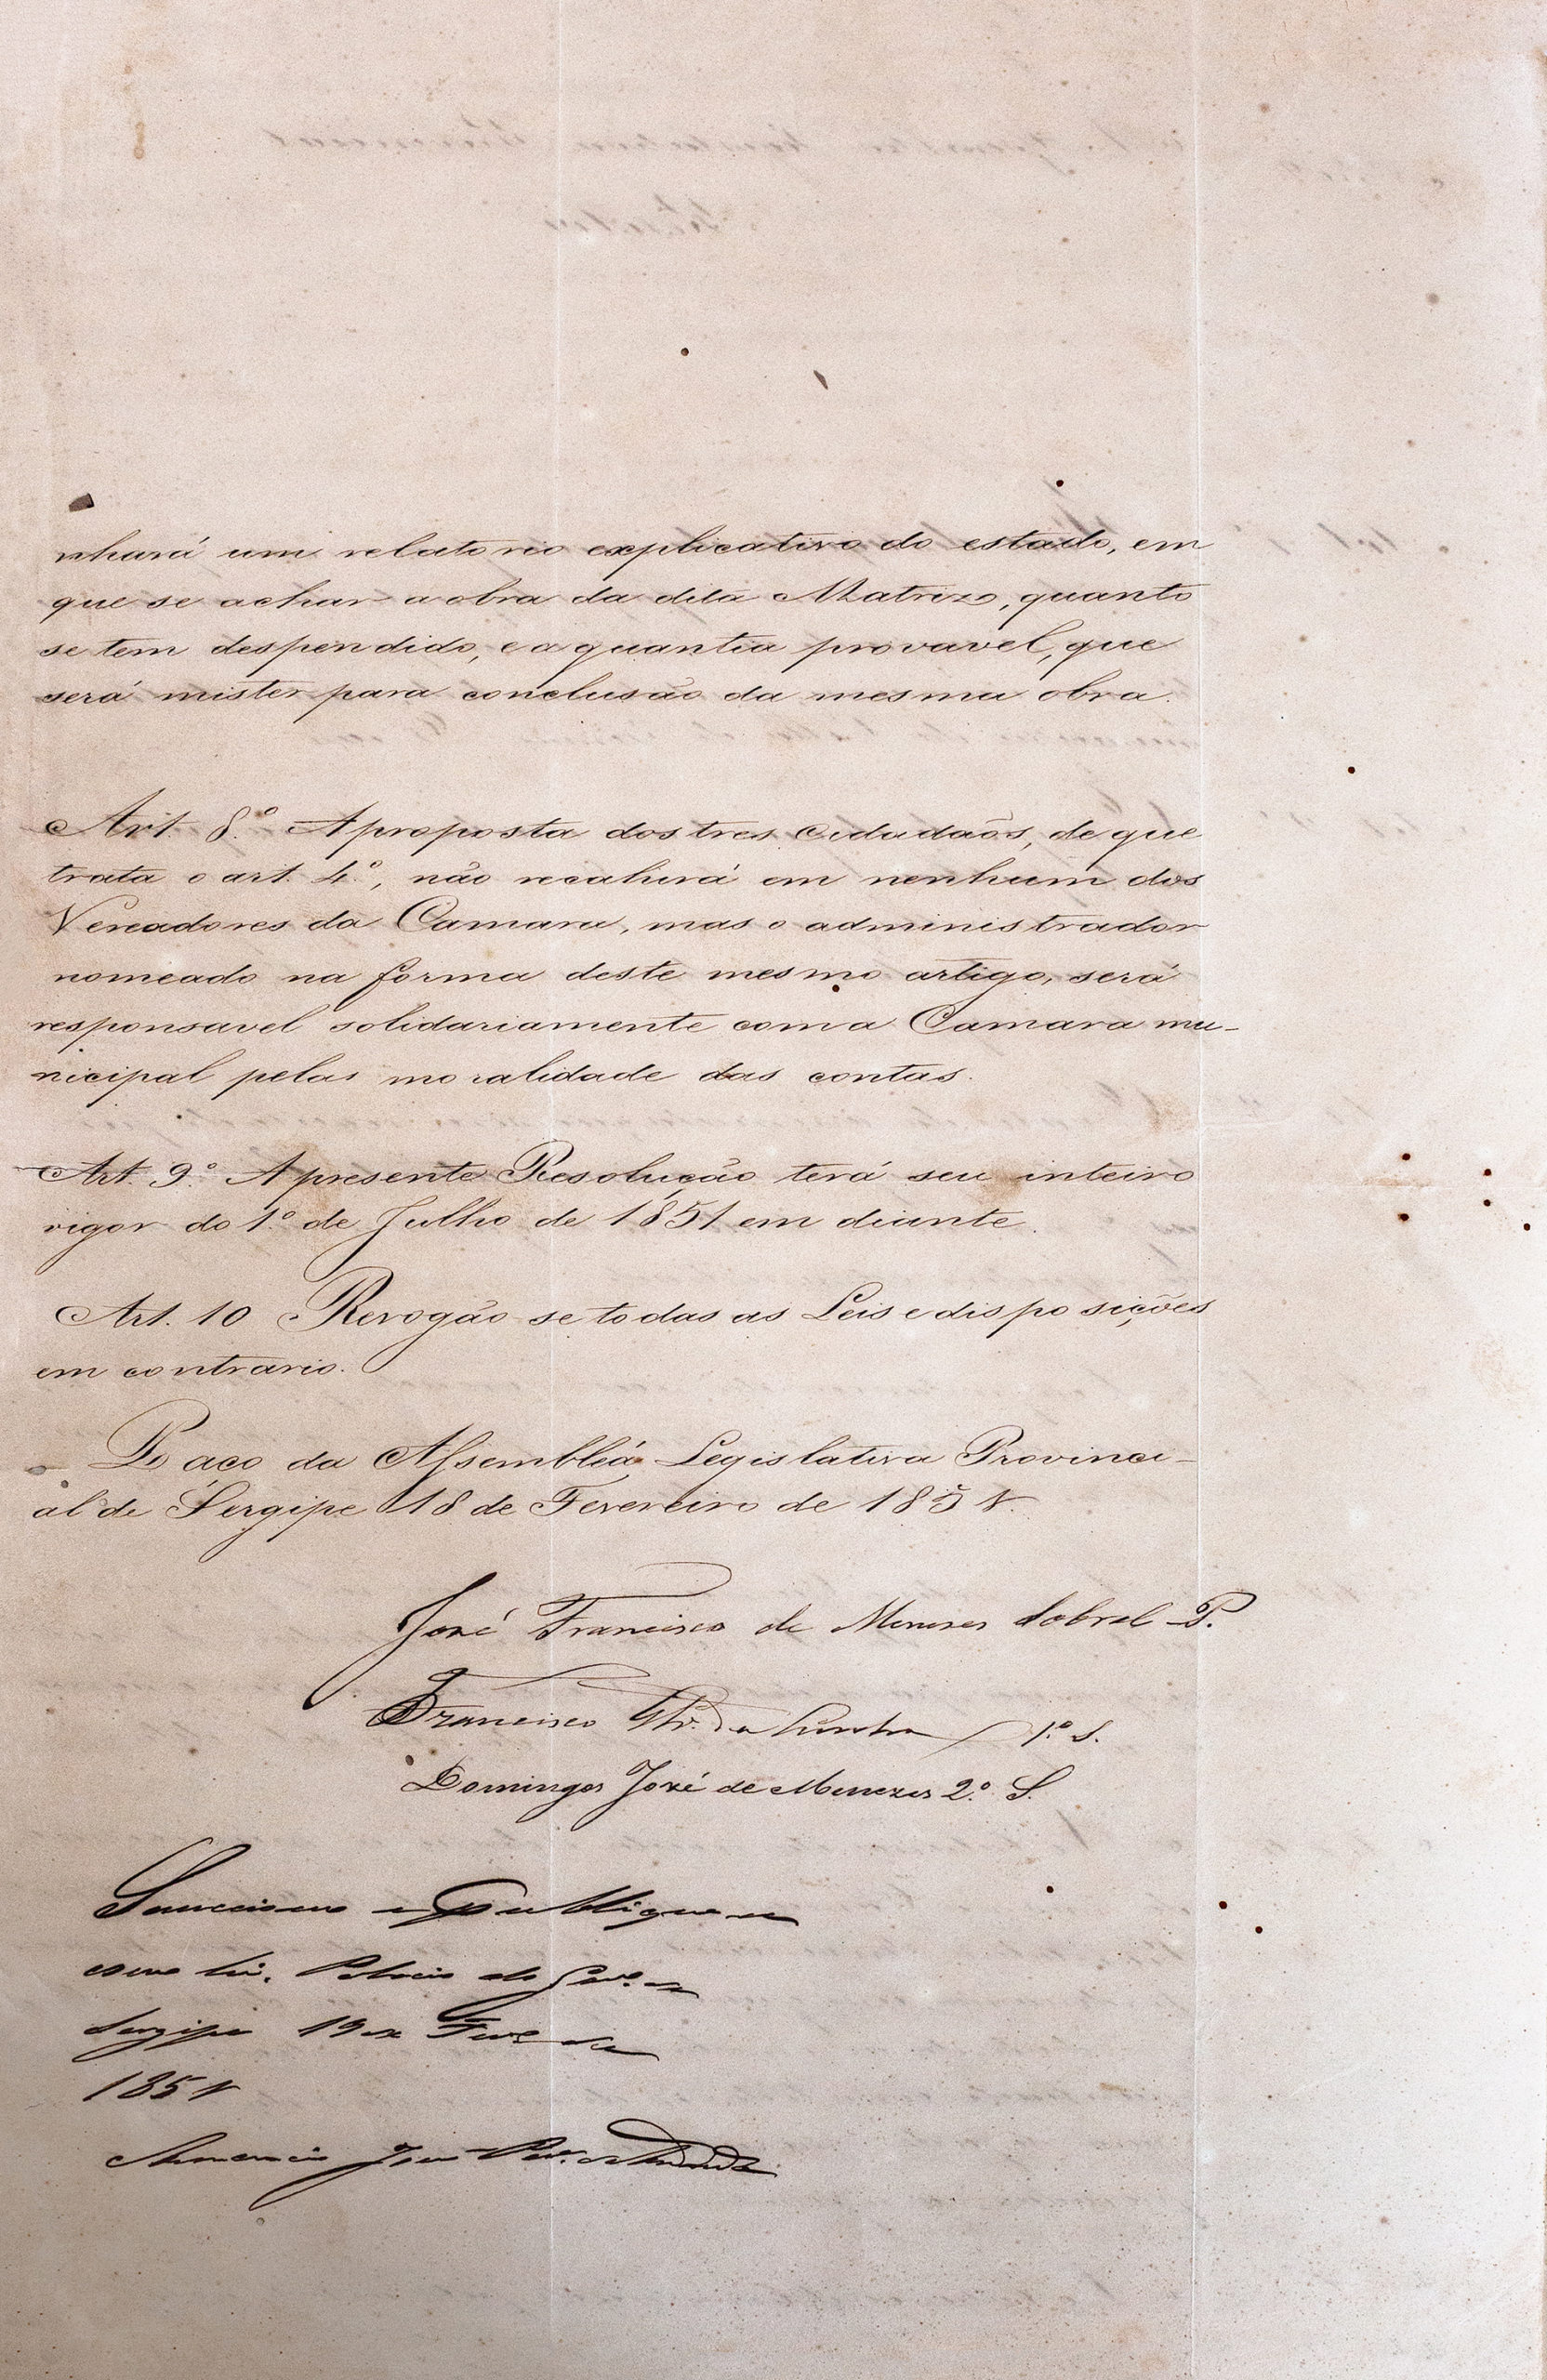 nhará um relatorio explicativo do estado, em
que se achar a obra da dita Matriz, quanto
se tem despendido, e a quantia provavel, que
será mister para conclusão da mesma obra.
Art. 8.º A proposta dos tres cidadaõs, de que
trata o art. 4.º, não recahirá em nenhum dos
Vereadores da Camara, mas o administrador
nomeado na forma deste mesmo artigo, será
responsavel solidariamente com a Camara mu-
nicipal pelas moralidade das contas.
Art. 9.º A presente Resolução terá seu inteiro
vigor do 1.º de Julho de 1851 em diante.
Art. 10 Revogão se todas as Leis e disposições
em contrario.
Paço da Assembléa Legislativa Provinci-
al de Sergipe 18 de Fevereiro de 1851.
José Francisco de Menezes Sobral P.
Francisco da Cunha 1.º S.
Domingos José de Menezes 2.º S.
Sancciono e publique se
como Lei. Palacio do Gov.º de
Sergipe 19 de Fev.º de
1851
Amancio João Per.ª de Andrade